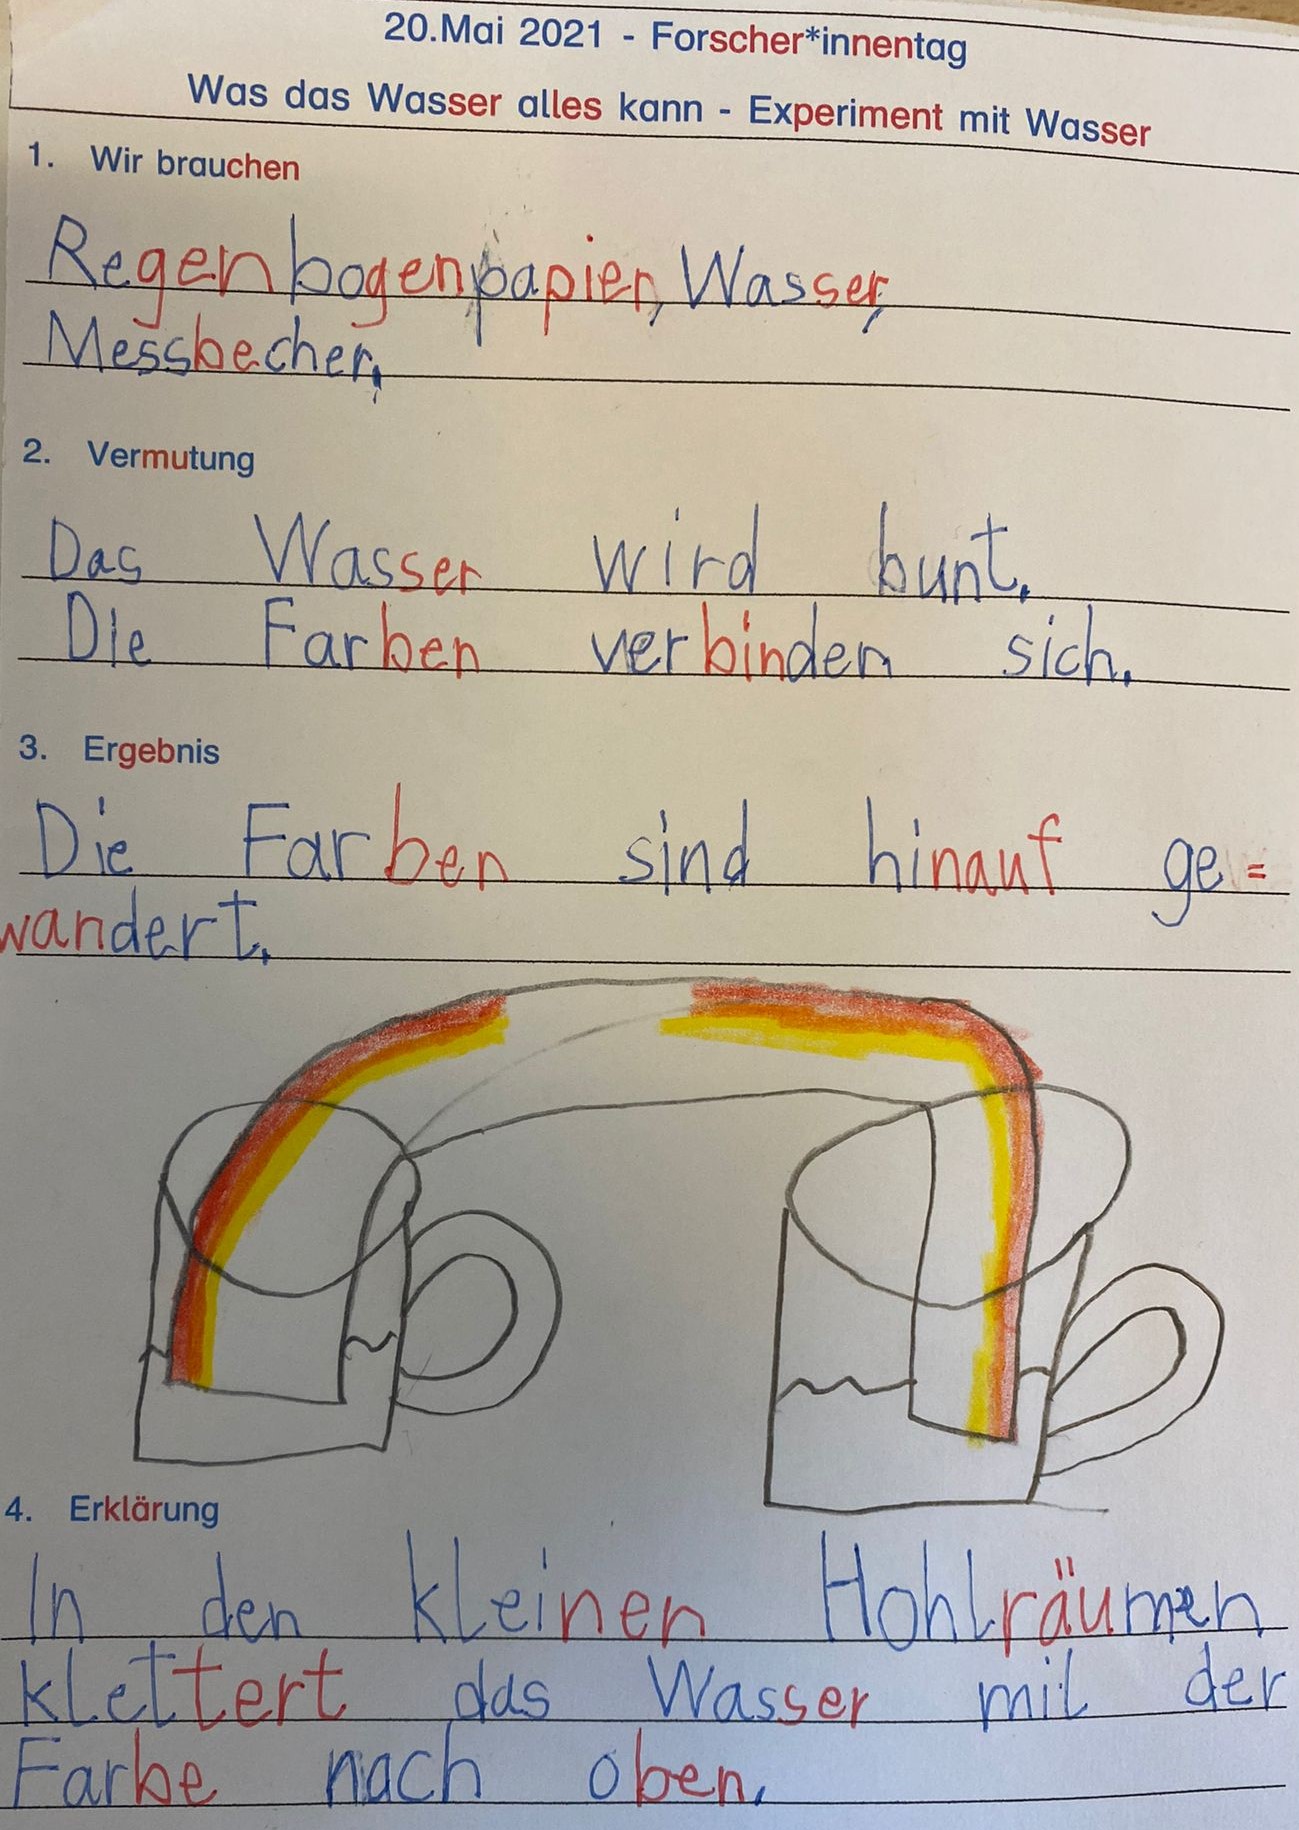 20.Mai 2021 - Forscher*innentag
Was das Wasser alles kann - Experiment mit Wasser
1. Wir brauchen
Regenbogenpapier, Wasser,
Messbecher,
2. Vermutung
Das Wasser wird bunt.
DIe Farben verbinden sich.
3. Ergebnis
Die Farben sind hinauf ge=
wandert.
4. Erklärung
In den kleinen Hohlräumen
klettert das Wasser mit der
Farbe nach oben.